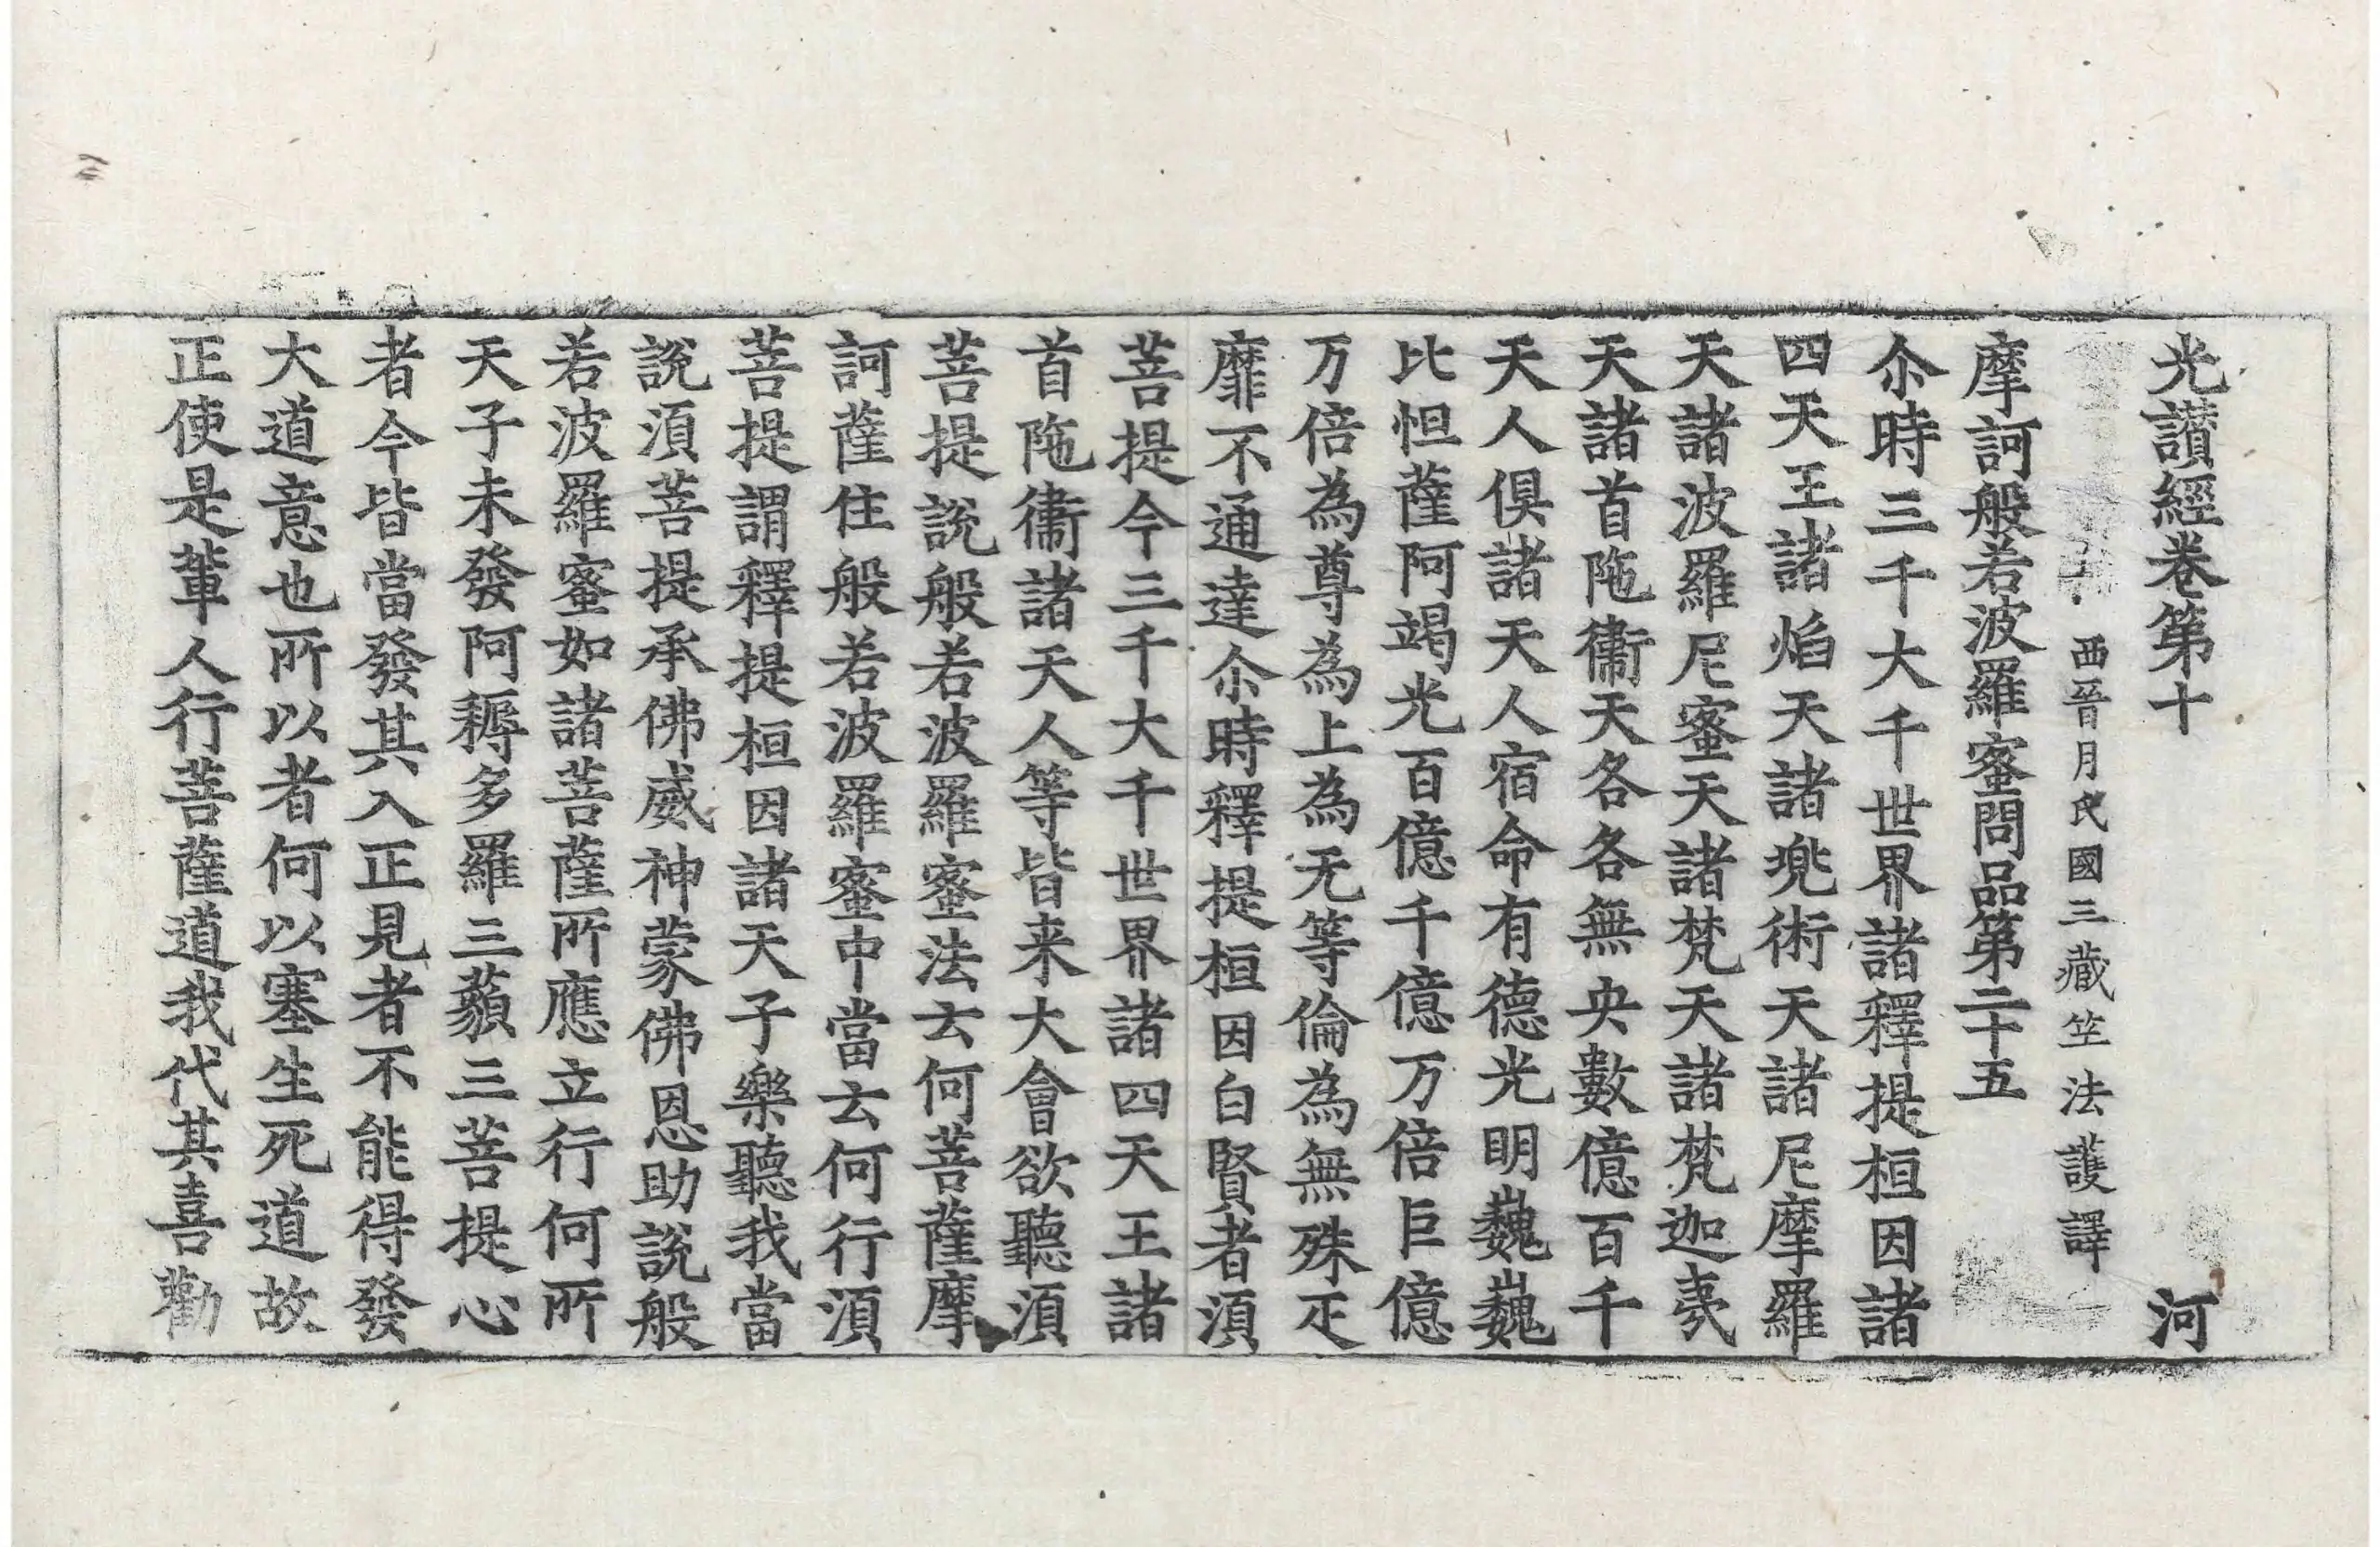 光讃經卷第十 河
西晉月氏國三藏竺法護譯
摩訶般若波羅蜜問品第二十五
尒時三千大千世界諸釋提桓因諸
四天王諸焰天諸兠術天諸尼摩羅
天諸波羅尼蜜天諸梵天諸梵迦夷
天諸首陁衞天各各無央數億百千
天人俱諸天人宿命有德光明巍巍
比怛薩阿竭光百億千億万倍巨億
万倍為尊為上為无等倫為無殊疋
靡不通達尒時釋提桓因白賢者湏
菩提今三千大千世界諸四天王諸
首陁衞諸天人等皆来大會欲聽湏
菩提說般若波羅蜜法云何菩薩摩
訶薩住般若波羅蜜中當云何行湏
菩提謂釋提桓因諸天子樂聽我當
說湏菩提承佛威神蒙佛恩助說般
若波羅蜜如諸菩薩所應立行何所
天子未發阿耨多羅三藐三菩提心
者今皆當發其入正見者不能得發
大道意也所以者何以塞生死道故
正使是輩人行菩薩道我代其喜勸